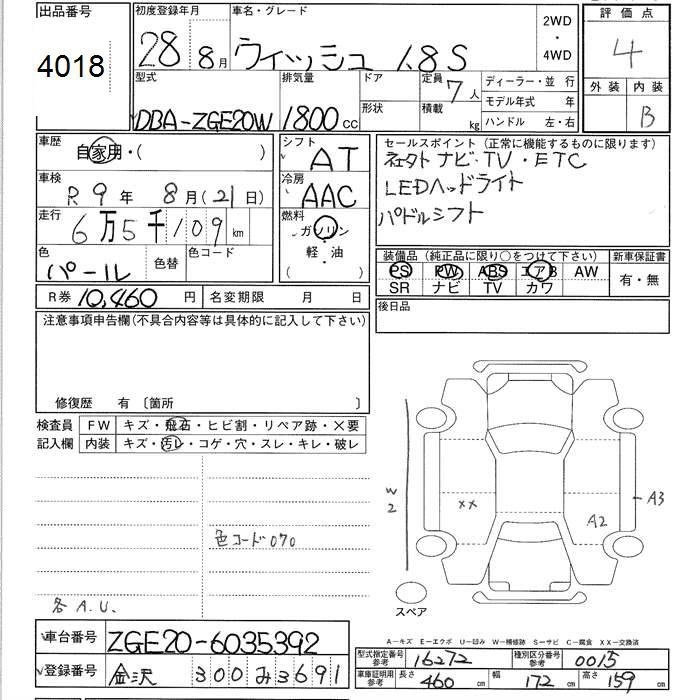 出品番号
4018
初度登録年月
28 8月
車名・グレード
ウィッシュ 1.8S
2WD
・
4WD
評価点
4
外装 内装
B
型式
DBA-ZGE20W
排気量
1800cc
ドア
形状
定員 7人
積載 kg
ディーラー・並行
モデル年式 年
ハンドル 左・右
車歴
自家用・( )
車検
R9年 8月(21日)
走行
6万5千109km
色
パール
色替
色コード
シフト
AT
冷房
AAC
燃料
ガソリン
軽・油
( )
セールスポイント(正常に機能するものに限ります)
社外ナビ・TV・ETC
LEDヘッドライト
パドルシフト
装備品(純正品に限り○をつけて下さい)
PS PW ABS エアB AW
SR ナビ TV カワ
新車保証書
有・無
後日品
R券 10,460円
名変期限 月 日
注意事項申告欄(不具合内容等は具体的に記入して下さい)
修復歴 有 〔箇所 〕
検査員
記入欄
FW キズ・飛石・ヒビ割・リペア跡・×要
内装 キズ・汚レ・コゲ・穴・スレ・キレ・破レ
色コード070
各A.U.
W2
XX
A2
A3
スペア
A-キズ E-エクボ U-凹み W-補修跡 S-サビ C-腐食 XX-交換済
車台番号 ZGE20-6035392
登録番号 金沢 300 み 3691
型式指定番号
参考
16272
種別区分番号
参考
0015
車庫証明用
参考
長さ 460cm 幅 172cm 高さ 159cm